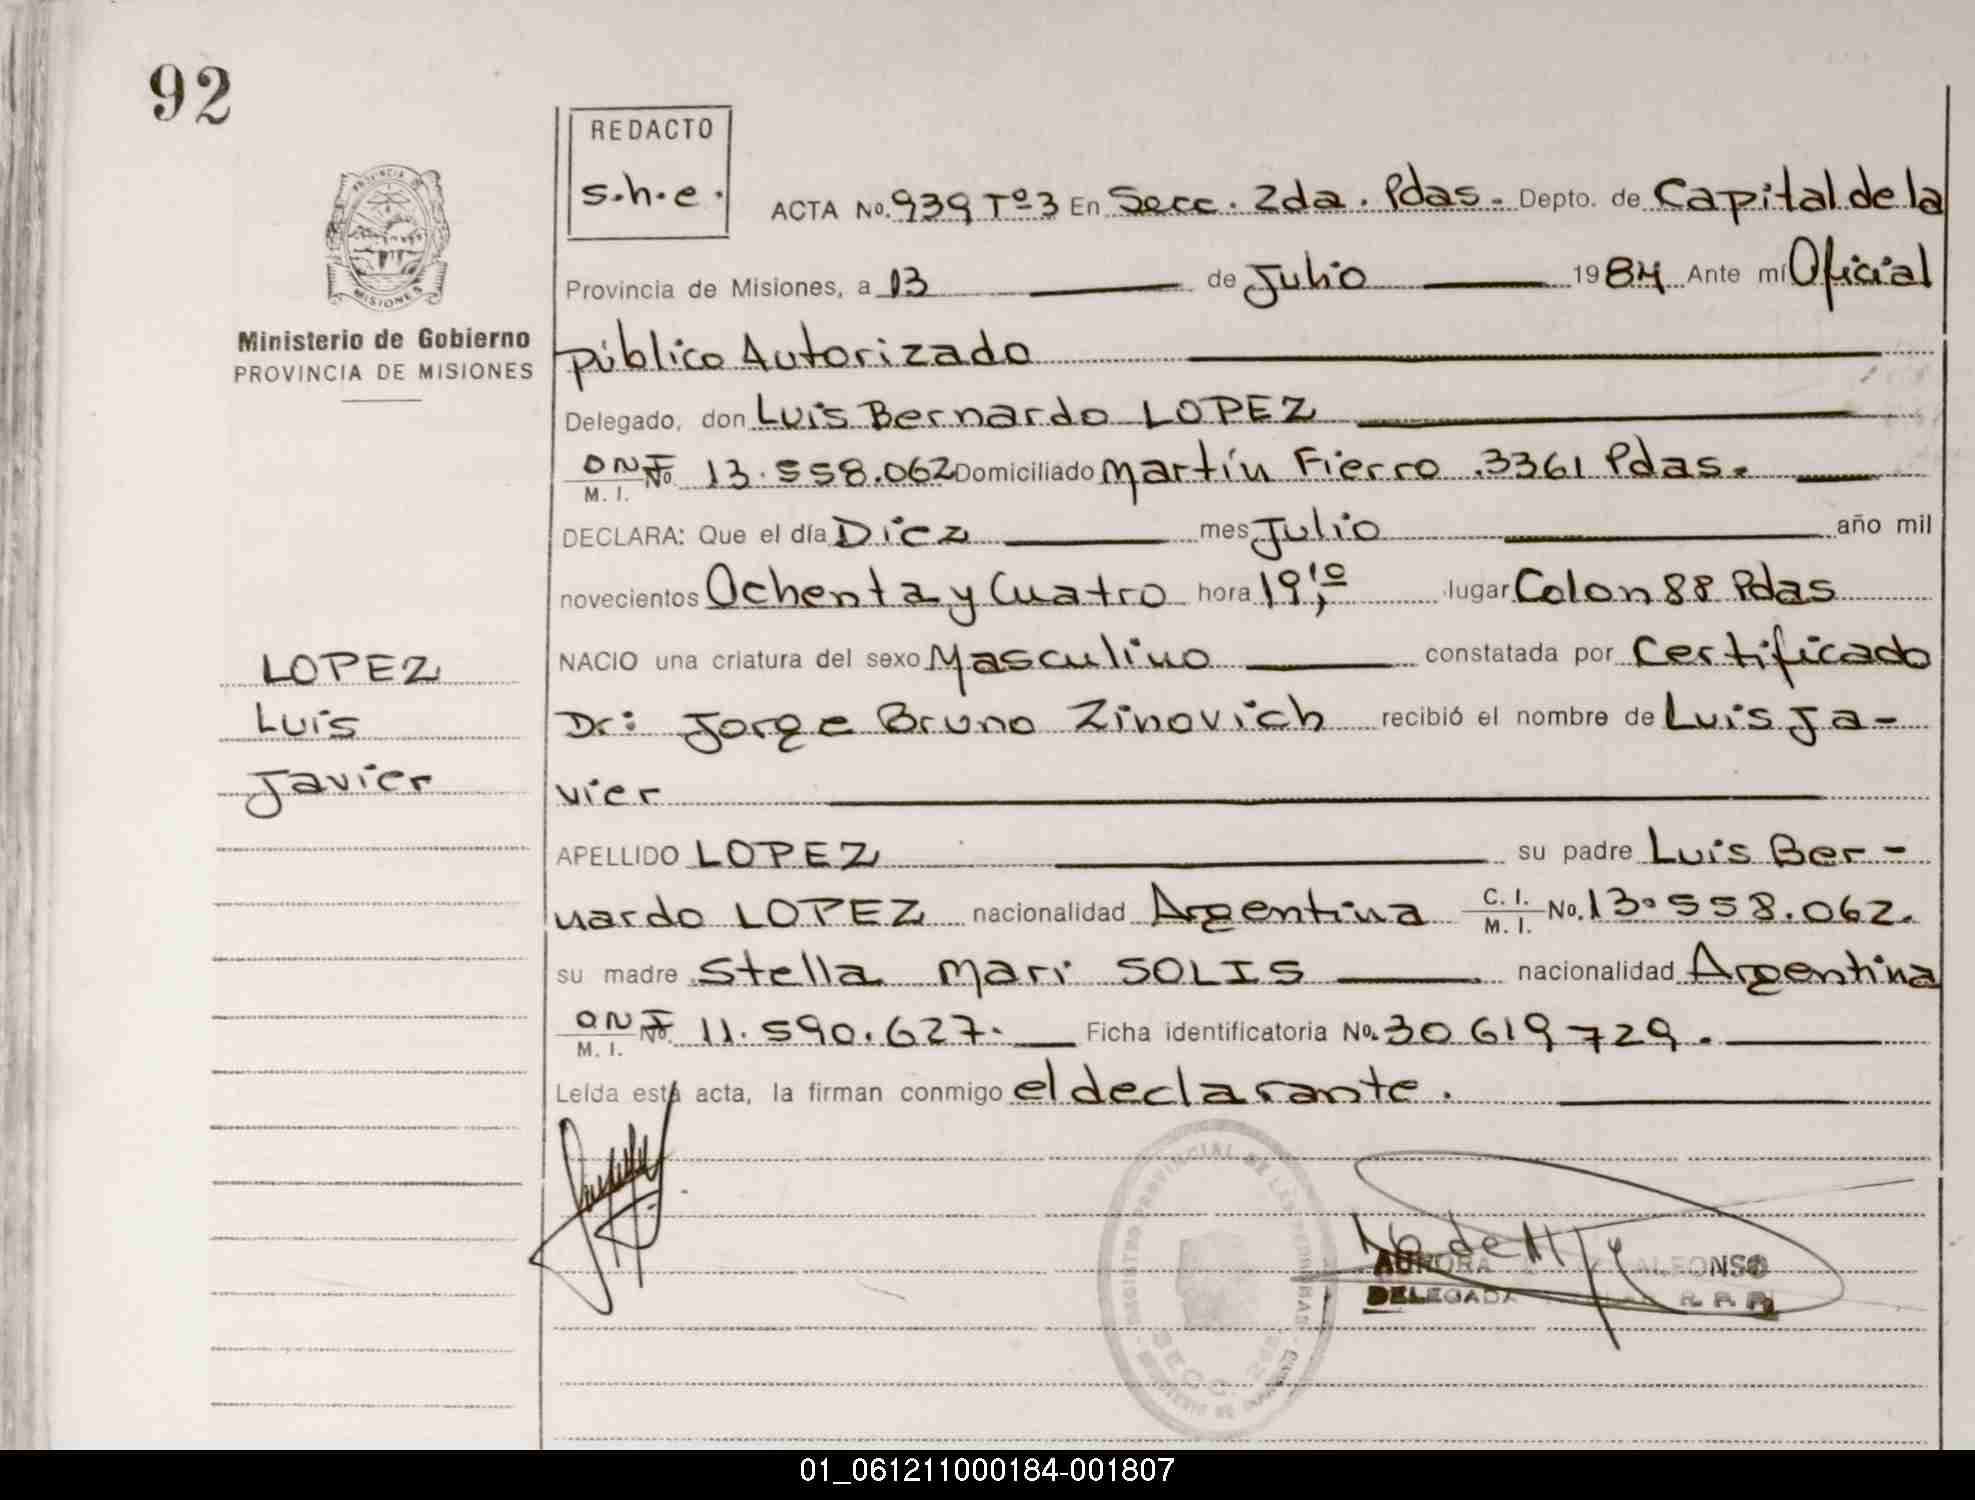 92
REDACTO
s.h.e.
ACTA No. 939 Tº3 En Secc. 2da. Pdas. Depto. de Capital de la
Provincia de Misiones, a 13 de Julio 1984 Ante mí Oficial
público Autorizado
Delegado, don Luis Bernardo LOPEZ
DNI No. 13.558.062 Domiciliado Martín Fierro 3361 Pdas.
M. I.
DECLARA: Que el día Diez mes Julio año mil
novecientos Ochenta y Cuatro hora 19,10 lugar Colon 88 Pdas
NACIO una criatura del sexo Masculino constatada por Certificado
Dr: Jorge Bruno Zinovich recibió el nombre de Luis Ja-
vier
APELLIDO LOPEZ su padre Luis Ber-
nardo LOPEZ nacionalidad Argentina C. I. M. I. No. 13.558.062.
su madre Stella Mari SOLIS nacionalidad Argentina
DNI No. 11.590.627. Ficha identificatoria No. 30 619 729.
M. I.
Leída está acta, la firman conmigo el declarante.
PROVINCIA DE
MISIONES
Ministerio de Gobierno
PROVINCIA DE MISIONES
LOPEZ
Luis
Javier
REGISTRO PROVINCIAL DE LAS PERSONAS
SECC. 2da.
AURORA ALFONSO
DELEGADA R. P. P.
01_061211000184-001807